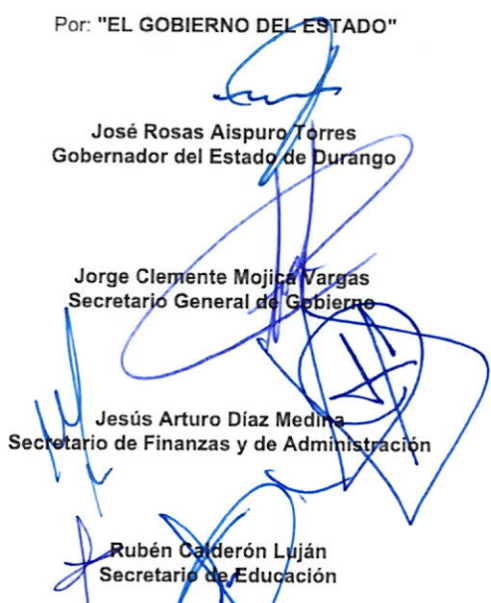 Por: "EL GOBIERNO DEL ESTADO"
José Rosas Aispuro Torres
Gobernador del Estado de Durango
Jorge Clemente Mojica Vargas
Secretario General de Gobierno
Jesús Arturo Díaz Medina
Secretario de Finanzas y de Administración
Rubén Calderón Luján
Secretario de Educación